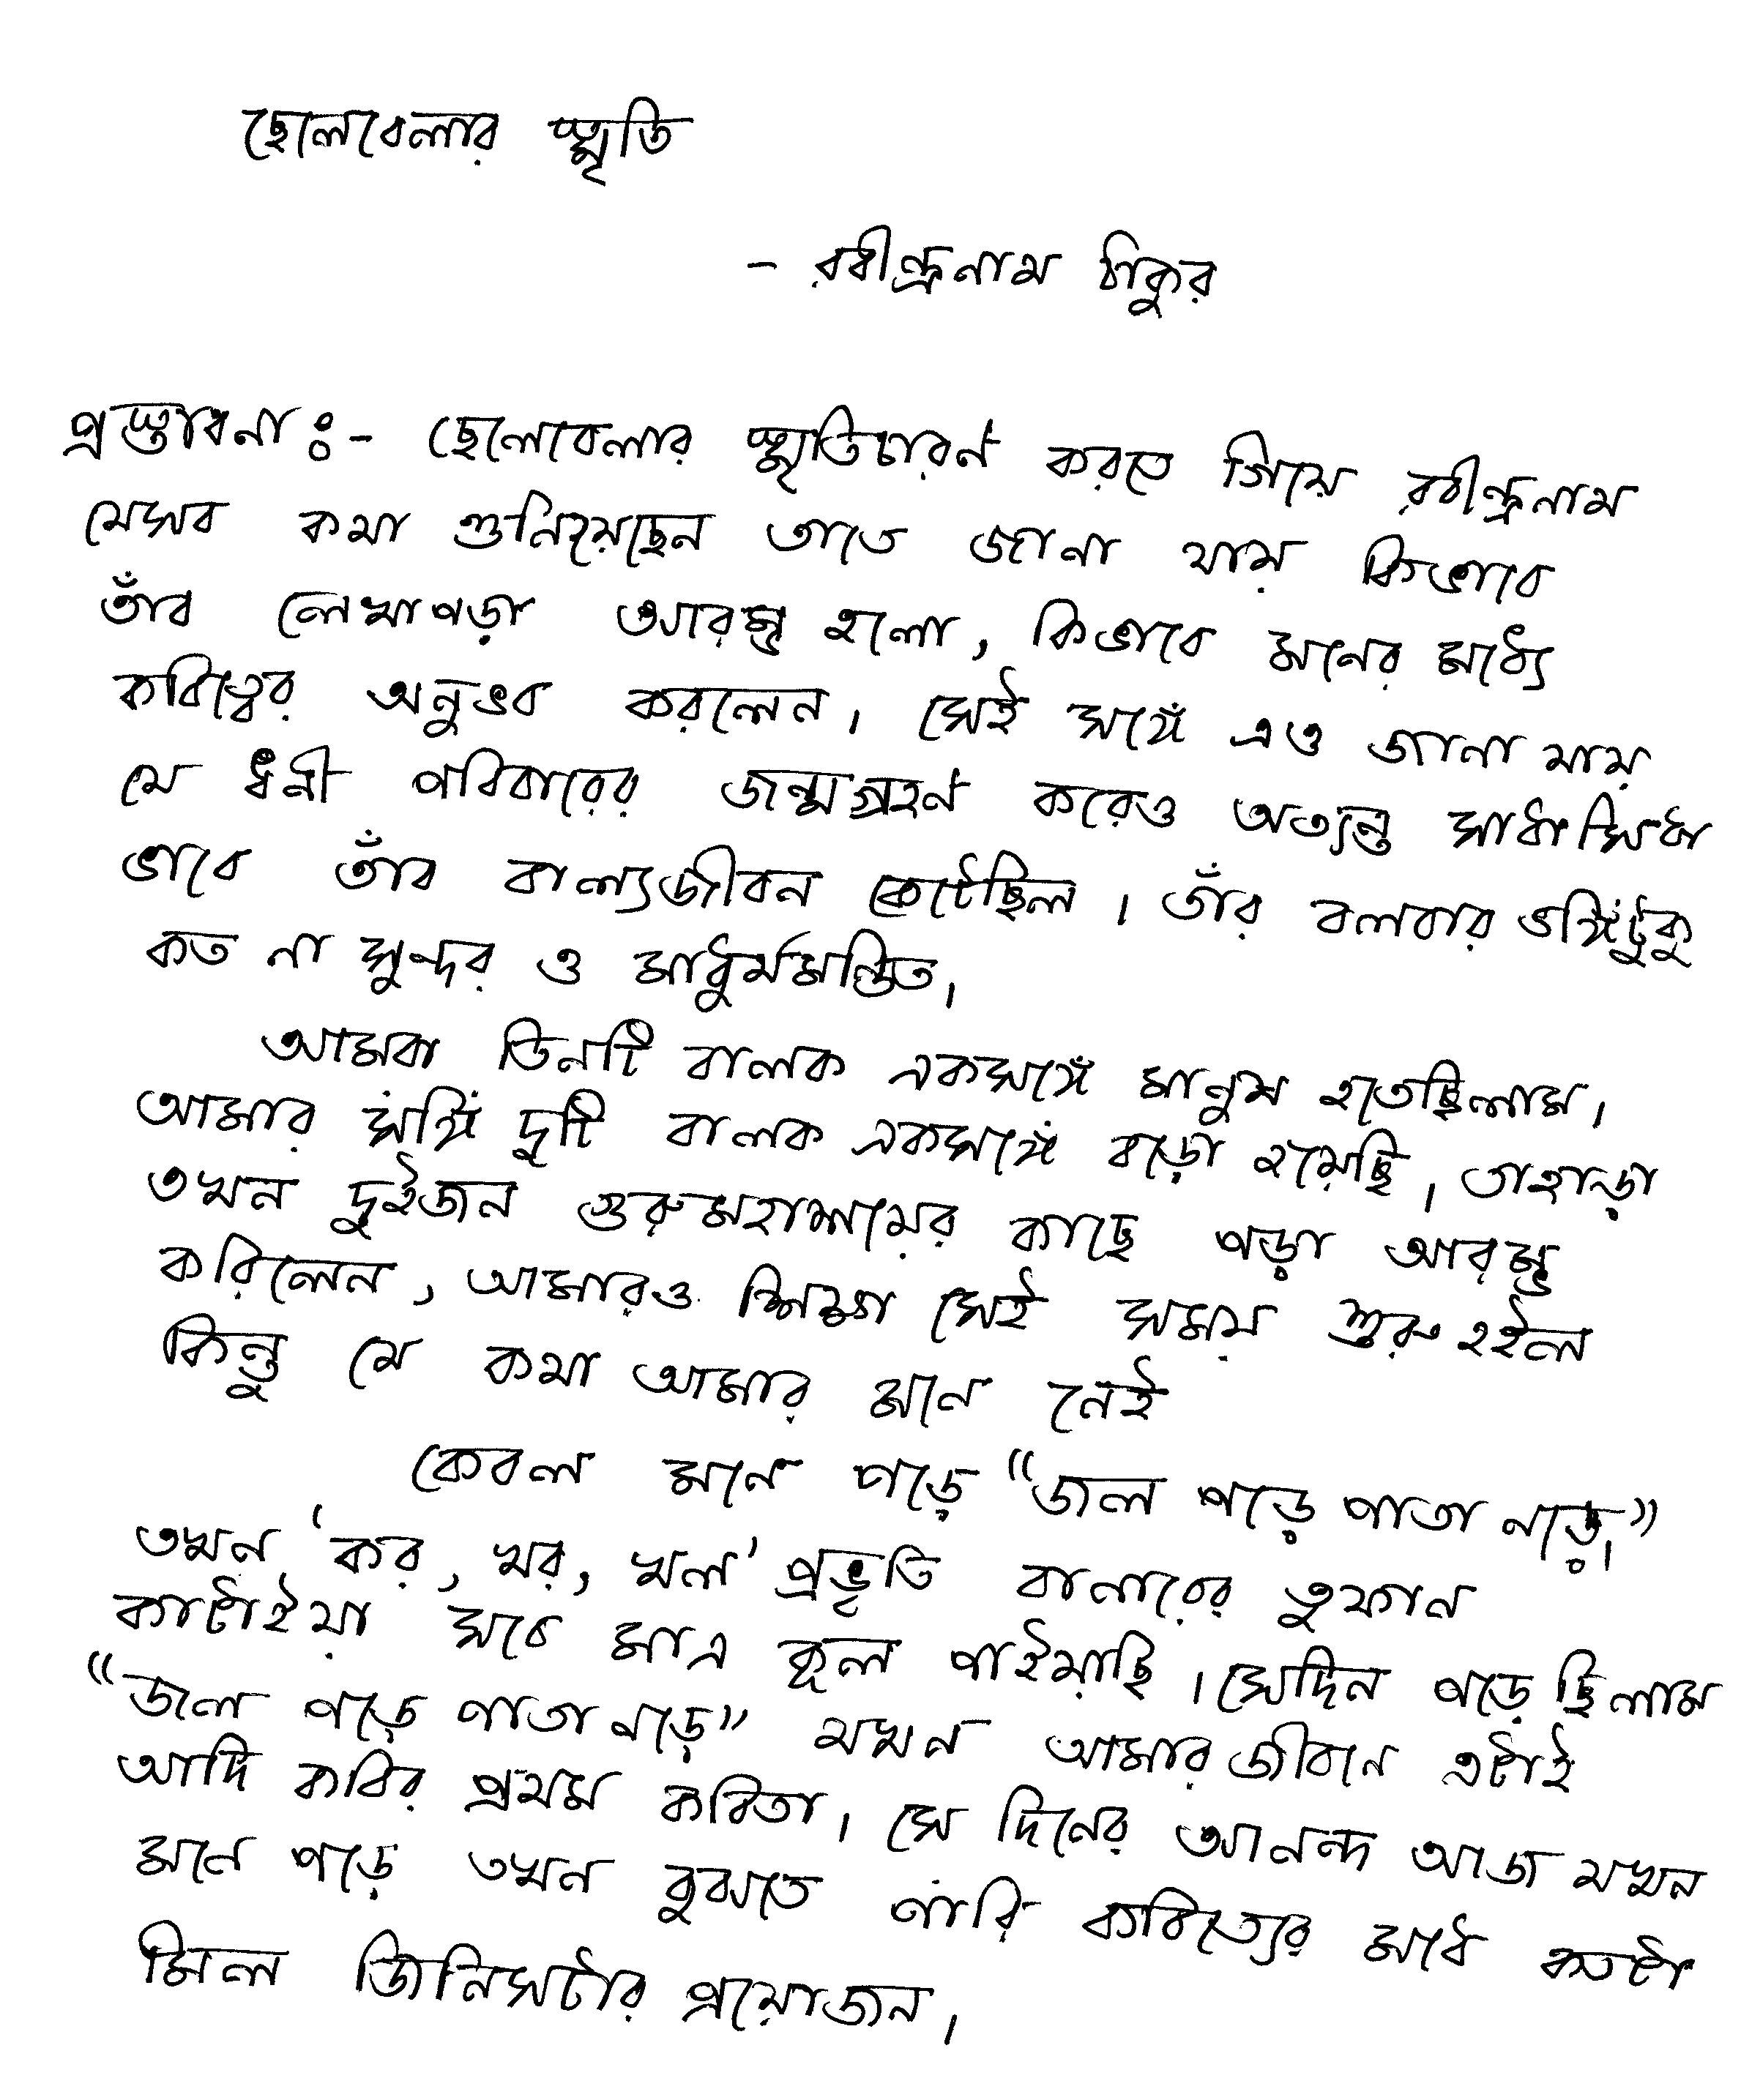 ছেলেবেলার স্মৃতি
- রবীন্দ্রনাথ ঠাকুর
প্রস্তাবনা ঃ- ছেলেবেলার স্মৃতিচারণ করতে গিয়ে রবীন্দ্রনাথ
যেসব কথা শুনিয়েছেন তাতে জানা যায় কিভাবে
তাঁর লেখাপড়া আরম্ভ হলো, কিভাবে মনের মধ্যে
কবিত্বের অনুভব করলেন। সেই সঙ্গে এও জানা যায়
যে ধনী পরিবারের জন্মগ্রহণ করেও অত্যন্ত সাধাসিধা
ভাবে তাঁর বাল্যজীবন কেটেছিল। তাঁর বলবার ভঙ্গিটুকু
কত না সুন্দর ও মাধুর্যমন্ডিত।
আমরা তিনটি বালক একসঙ্গে মানুষ হতেছিলাম।
আমার সঙ্গি দুটি বালক একসঙ্গে বড়ো হয়েছি। তাহাড়া
তখন দুইজন গুরুমহাশয়ের কাছে পড়া আরম্ভ
করিলেন, আমারও শিক্ষা সেই সময় শুরু হইল
কিন্তু যে কথা আমার মনে নেই
কেবল মনে পড়ে “জল পড়ে পাতা নড়ে।”
তখন ‘কর, খর, খল’ প্রভৃতি বানারের তুফান
কাটাইয়া সবে মাত্র কূল পাইয়াছি। সেদিন পড়েছিলাম
“জল পড়ে পাতা নড়ে” যখন আমার জীবনে এটাই
আদি কবির প্রথম কবিতা। সে দিনের আনন্দ আজ যখন
মনে পড়ে তখন বুঝতে পারি কবিত্যের মধে কতটা
মিল জিনিসটার প্রয়োজন।